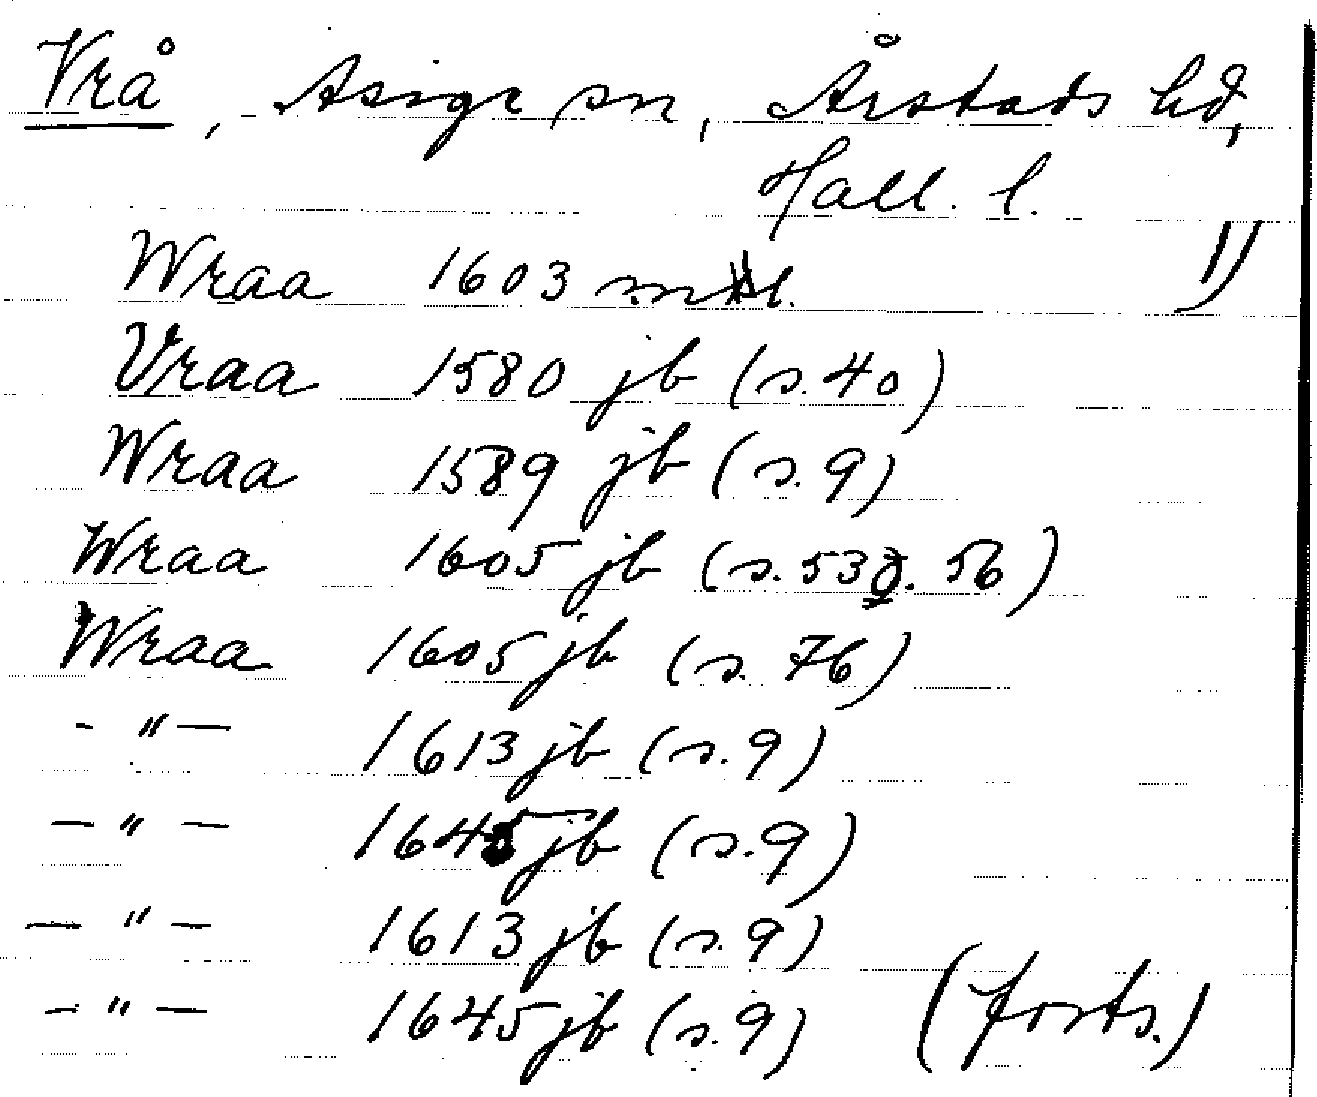 Vrå, Asige sn, Årstads hd,
Hall. l.
Wraa 1603 mtl. 1)
Vraa 1580 jb (s. 40)
Wraa 1589 jb (s. 9)
Wraa 1605 jb (s. 53 o. 56)
Wraa 1605 jb (s. 76)
- " - 1613 jb (s. 9)
- " - 1645 jb (s. 9)
- " - 1613 jb (s. 9)
- " - 1645 jb (s. 9) (forts.)